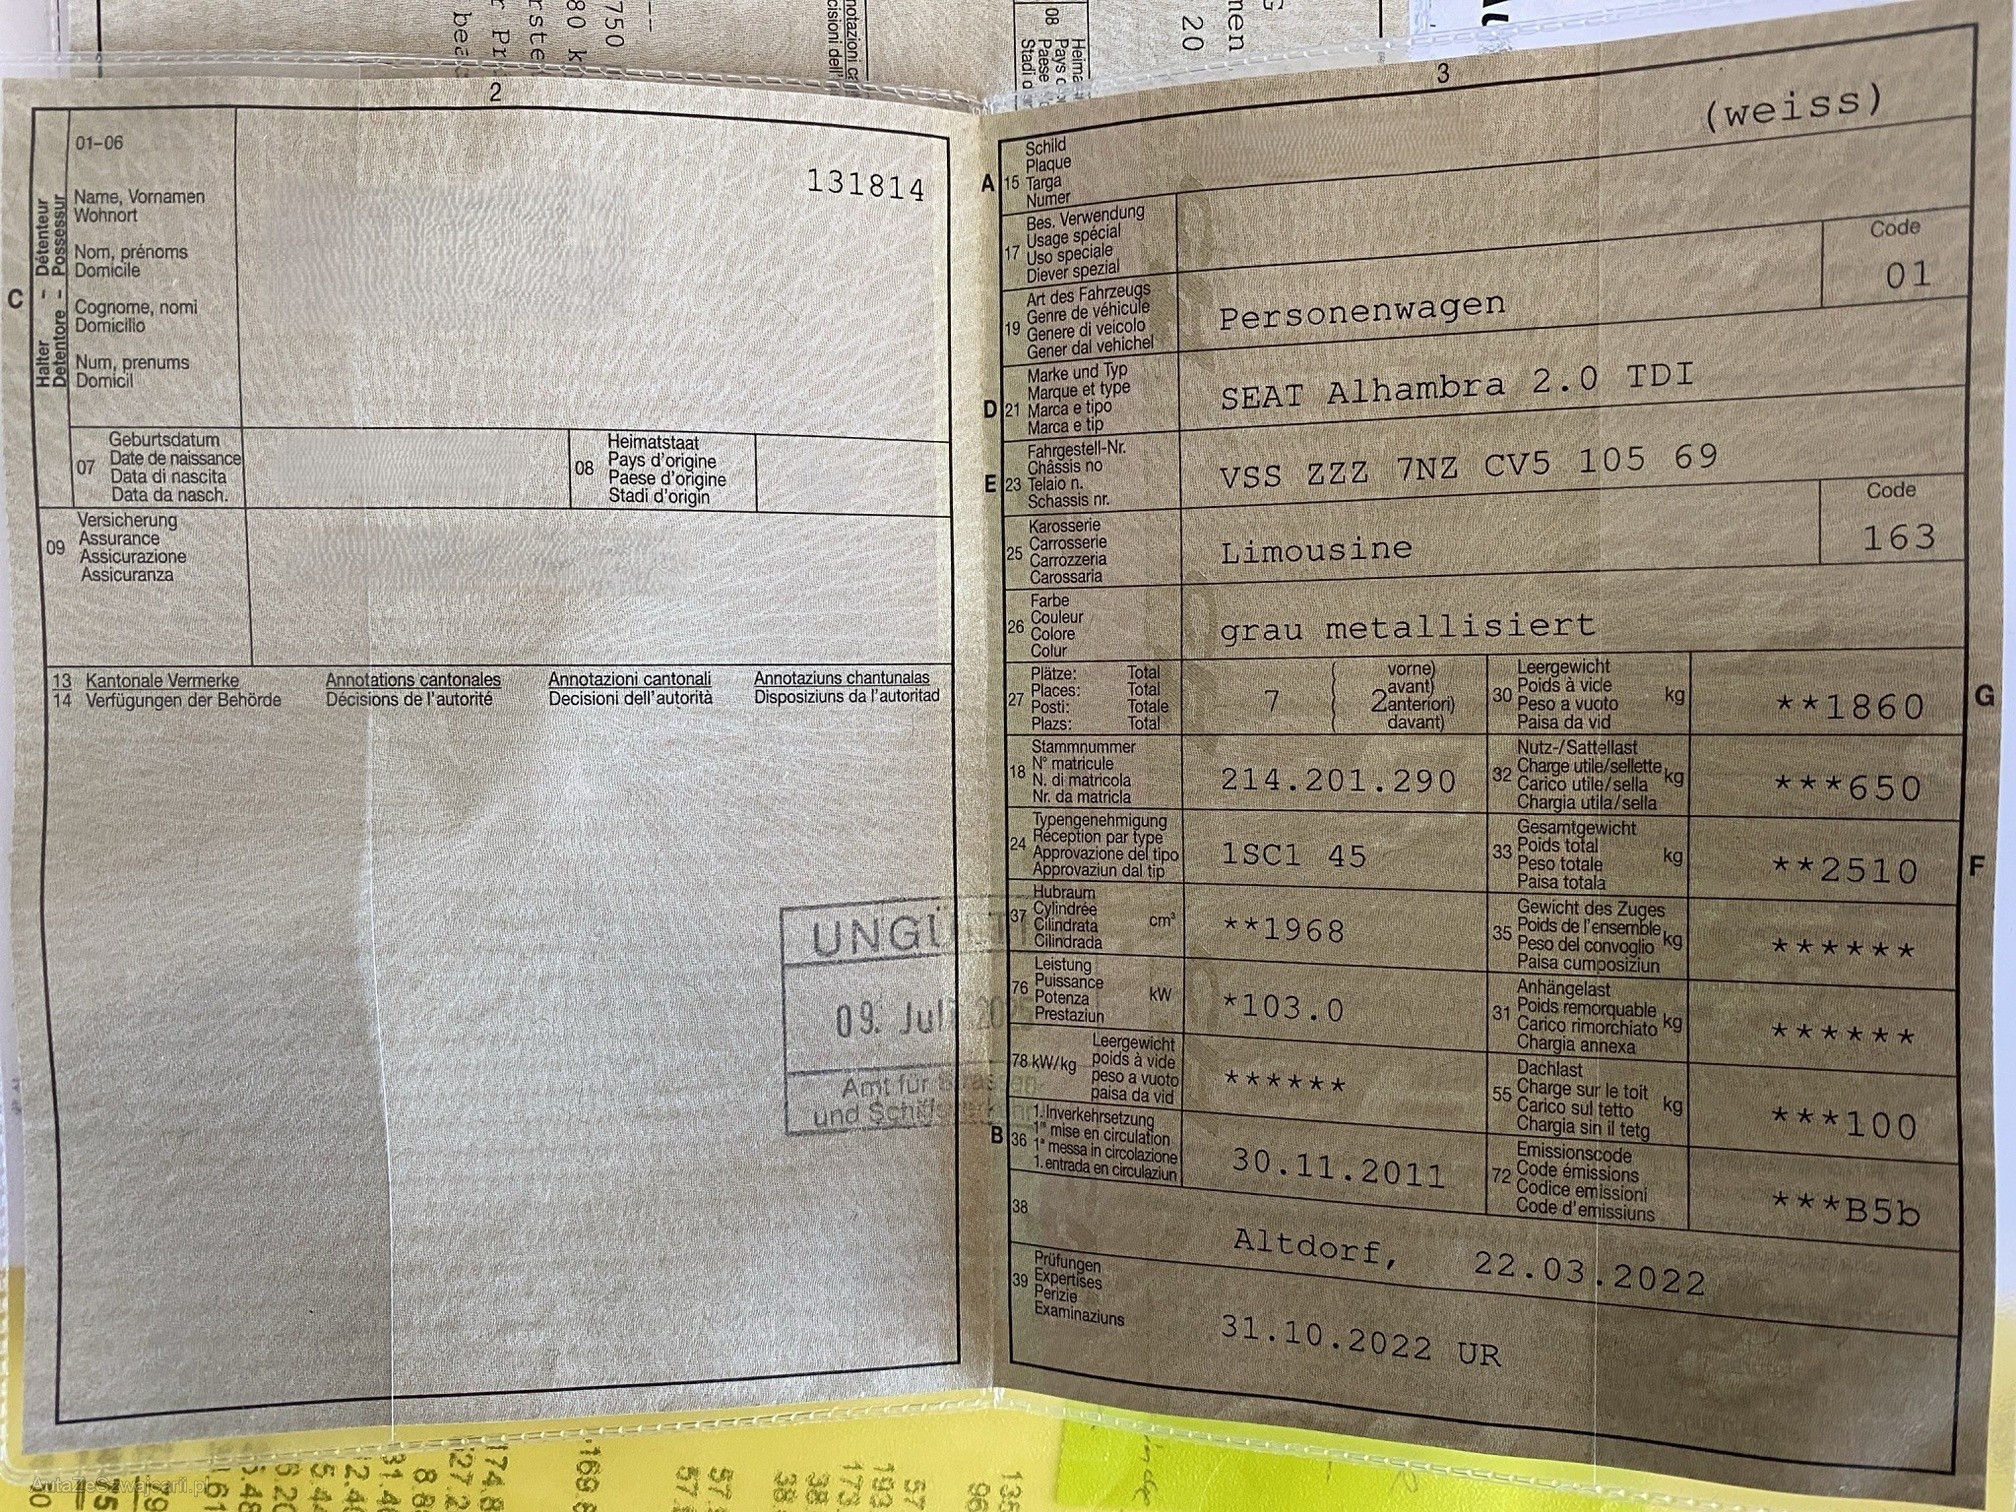 2
01–06
131814
C
Halter – Détenteur
Detentore – Possessur
Name, Vornamen
Wohnort
Nom, prénoms
Domicile
Cognome, nomi
Domicilio
Num, prenums
Domicil
07
Geburtsdatum
Date de naissance
Data di nascita
Data da nasch.
08
Heimatstaat
Pays d'origine
Paese d'origine
Stadi d'origin
09
Versicherung
Assurance
Assicurazione
Assicuranza
13 Kantonale Vermerke Annotations cantonales Annotazioni cantonali Annotaziuns chantunalas
14 Verfügungen der Behörde Décisions de l'autorité Decisioni dell'autorità Disposiziuns da l'autoritad
09. Juli
Amt für
3
(weiss)
A 15
Schild
Plaque
Targa
Numer
17
Bes. Verwendung
Usage spécial
Uso speciale
Diever spezial
19
Art des Fahrzeugs
Genre de véhicule
Genere di veicolo
Gener dal vehichel
Personenwagen
Code
01
D 21
Marke und Typ
Marque et type
Marca e tipo
Marca e tip
SEAT Alhambra 2.0 TDI
E 23
Fahrgestell-Nr.
Châssis no
Telaio n.
Schassis nr.
VSS ZZZ 7NZ CV5 105 69
25
Karosserie
Carrosserie
Carrozzeria
Carossaria
Limousine
Code
163
26
Farbe
Couleur
Colore
Colur
grau metallisiert
27
Plätze: Total
Places: Total
Posti: Totale
Plazs: Total
7
2
( vorne)
( avant)
( anteriori)
( davant)
30
Leergewicht
Poids à vide
Peso a vuoto
Paisa da vid
kg
**1860
G
18
Stammnummer
N° matricule
N. di matricola
Nr. da matricla
214.201.290
32
Nutz-/Sattellast
Charge utile/sellette
Carico utile/sella
Chargia utila/sella
kg
***650
24
Typengenehmigung
Réception par type
Approvazione del tipo
Approvaziun dal tip
1SC1 45
33
Gesamtgewicht
Poids total
Peso totale
Paisa totala
kg
**2510
F
37
Hubraum
Cylindrée
Cilindrata
Cilindrada
cm³
**1968
35
Gewicht des Zuges
Poids de l'ensemble
Peso del convoglio
Paisa cumposiziun
kg
******
76
Leistung
Puissance
Potenza
Prestaziun
kW
*103.0
31
Anhängelast
Poids remorquable
Carico rimorchiato
Chargia annexa
kg
******
78 kW/kg
Leergewicht
poids à vide
peso a vuoto
paisa da vid
******
55
Dachlast
Charge sur le toit
Carico sul tetto
Chargia sin il tetg
kg
***100
B 36
1. Inverkehrsetzung
1re mise en circulation
1a messa in circolazione
1. entrada en circulaziun
30.11.2011
72
Emissionscode
Code émissions
Codice emissioni
Code d'emissiuns
***B5b
38
Altdorf, 22.03.2022
39
Prüfungen
Expertises
Perizie
Examinaziuns
31.10.2022 UR
AutaZeSzwajcarii.pl